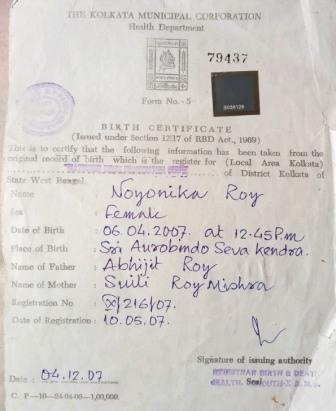 THE KOLKATA MUNICIPAL CORPORATION
Health Department
79437
Form No.-5
BIRTH CERTIFICATE
(Issued under Section 12/17 of RBD Act., 1969)
This is to certify that the following information has been taken from the
original record of birth which is the register for (Local Area Kolkata)
of District Kolkata of
State West Bengal.
Name : Noyonika Roy
Sex : Female
Date of Birth : 06.04.2007. at 12.45P.m
Place of Birth : Sri Aurobindo Seva Kendra.
Name of Father : Abhijit Roy
Name of Mother : Roy Mishra
Registration No. : /216/07.
Date of Registration : 10.05.07.
Signature of issuing authority
REGISTRAR BIRTH & DEATH
Seal
Date : 04.12.07
C. P—10—24-04-06—1,00,000.